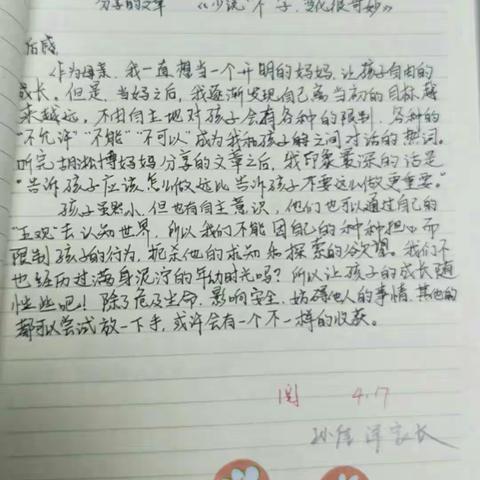 分享的文章 《少说"不"字,变化很奇妙》
后感
作为母亲,我一直想当一个开明的妈妈,让孩子自由的
成长。但是,当妈妈之后,我逐渐发现自己离当初的目标越
来越远,不由自主地对孩子会有各种的限制,各种的
"不允许""不能""不可以"成为我和孩子的之间对话的热词。
听完胡淞博妈妈分享的文章之后,我印象最深的话是
"告诉孩子应该怎么做远比告诉孩子不要这么做更重要。"
孩子虽然小,但也有自主意识,他们也可以通过自己的
"五观"去认知世界,所以我们不能因自己的种种担心而
限制孩子的行为,扼杀他们的求知和探索的欲望。我们不
也经历过满身泥泞的年幼时光吗?所以让孩子的成长随
性些吧!除了危及生命,影响安全,妨碍他人的事情,其他的
都可以尝试放一下手,或许会有一个不一样的收获。
阅 4.17
孙 家长